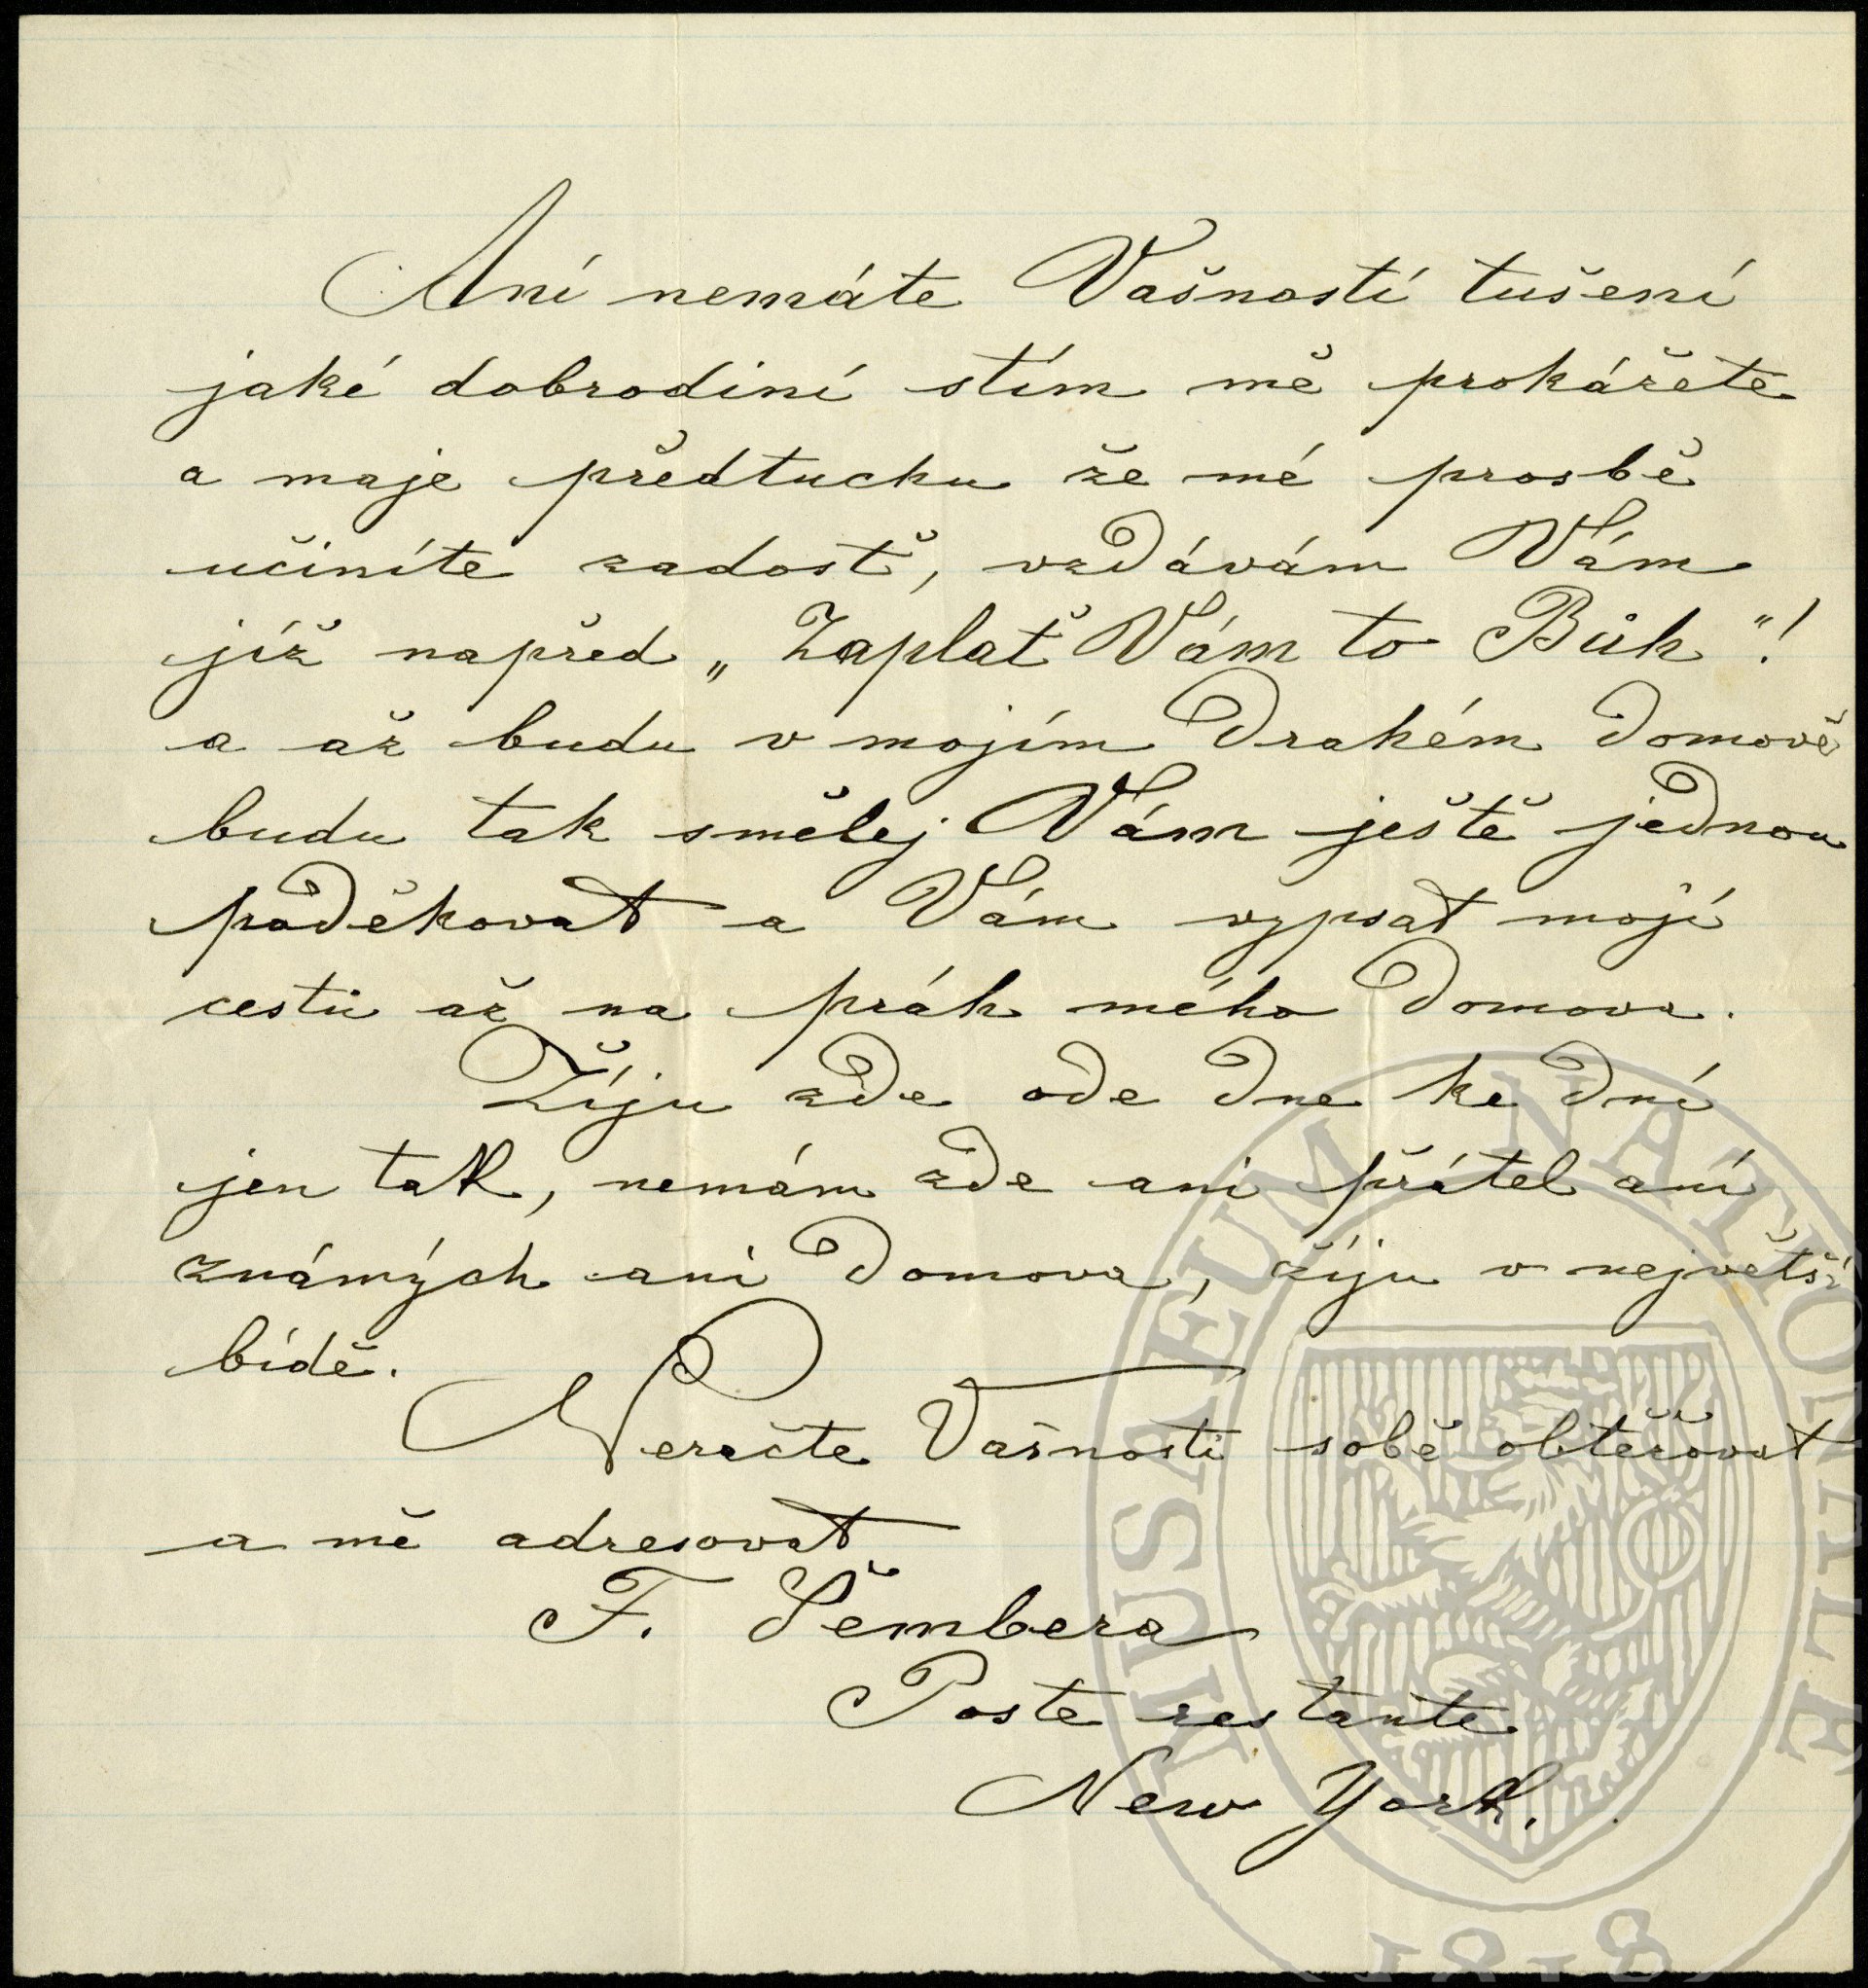 Ani nemáte Vašnosti tušení
jaké dobrodiní stím mě prokážete
a maje předtuchu že mé prosbě
učiníte zadosť, vzdávám Vám
již napřed „Zaplať Vám to Bůh"!
a až budu v mojím drahém domově
budu tak smělej Vám ještě jednou
poděkovat a Vám vypsat mojí
cestu až na práh mého domova.
Žiju zde ode dne ke dni
jen tak, nemám zde ani přátel ani
známých ani domova, žiju v největší
bídě.
Neračte Vašnosti sobě obtěžovat
a mě adresovat
F. Šembera
Poste restante
New York.
MUSAEUM NATIONALE
1818